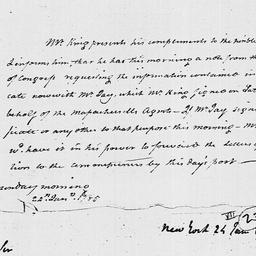 Mr. King presents his complements to the
& informs him that he has this morning a note from the
of Congress requesting the information contained in
cate now with Mr. Jay, which Mr. King signed on
behalf of the Massachusetts Agents - If Mr. Jay
ficate or any other to that purpose this morning -
wd. have it in his power to forward the
tion to the commissioners by this days post
monday morning
New York 24 Jan